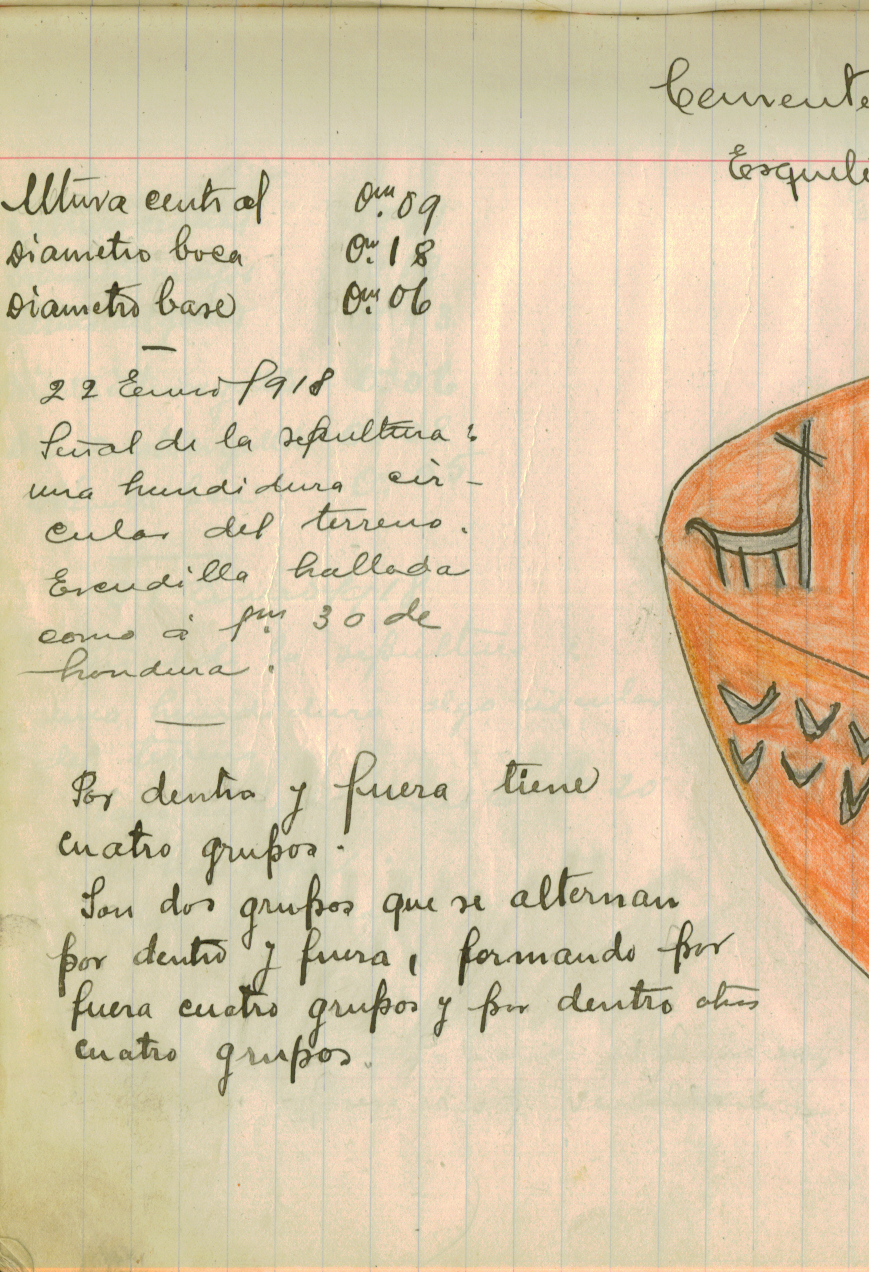 Cemente
Esquele
Altura central 0m.09
Diametro boca 0m.18
Diametro base 0m.06
22 Enero 1918
Señal de la sepultura:
una hundidura cir-
cular del terreno.
Escudilla hallada
como á 1m.30 de
hondura.
Por dentro y fuera tiene
cuatro grupos.
Son dos grupos que se alternan
por dentro y fuera, formando por
fuera cuatro grupos y por dentro otros
cuatro grupos.